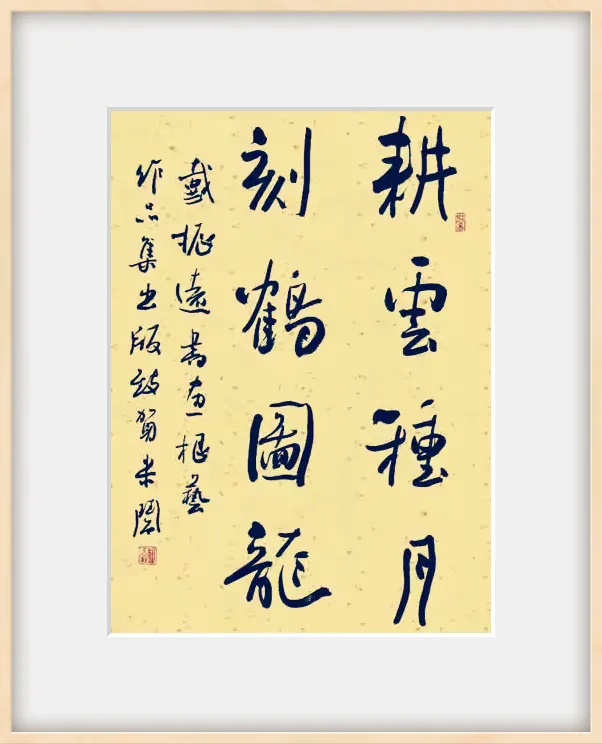 耕雲種月
刻鶴圖龍
戴振遠書畫根藝
作品集出版致賀米鬧